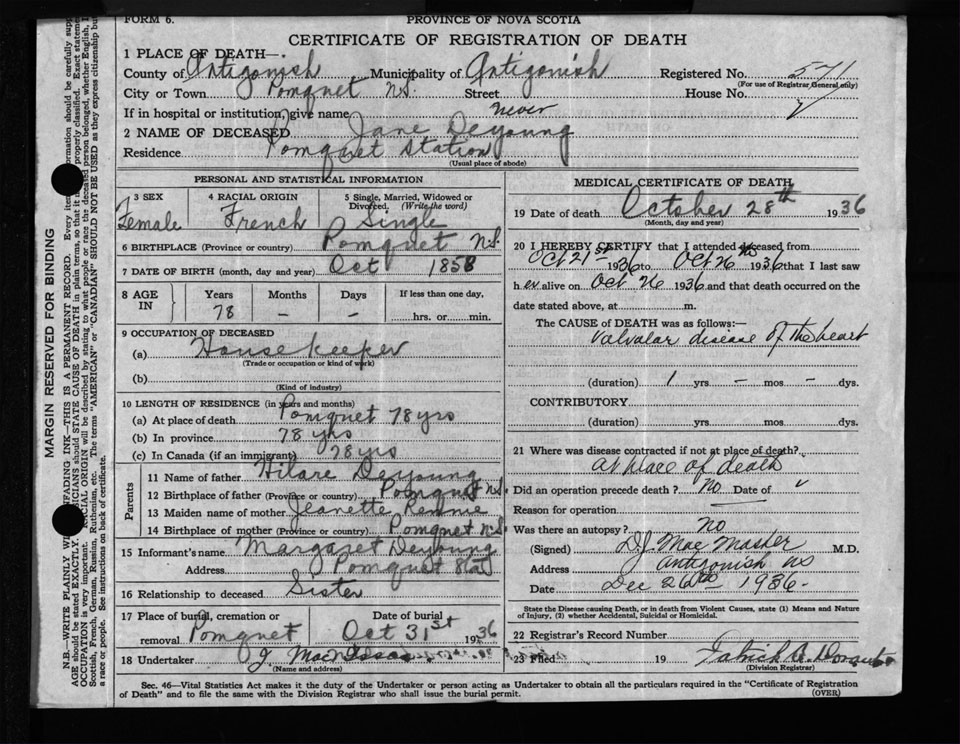 FORM 6.
PROVINCE OF NOVA SCOTIA
CERTIFICATE OF REGISTRATION OF DEATH
1 PLACE OF DEATH—
County of Antigonish Municipality of Antigonish Registered No. 571
(For use of Registrar General only)
City or Town Pomquet N.S. Street House No.
If in hospital or institution, give name never
2 NAME OF DECEASED Jane Deyoung
Residence Pomquet Station
(Usual place of abode)
PERSONAL AND STATISTICAL INFORMATION
3 SEX 4 RACIAL ORIGIN 5 Single, Married, Widowed or Divorced. (Write the word)
Female French Single
6 BIRTHPLACE (Province or country) Pomquet N.S.
7 DATE OF BIRTH (month, day and year) Oct 1858
8 AGE IN Years Months Days If less than one day,
78 – – hrs. or min.
9 OCCUPATION OF DECEASED
(a) Housekeeper
(Trade or occupation or kind of work)
(b)
(Kind of industry)
10 LENGTH OF RESIDENCE (in years and months)
(a) At place of death Pomquet 78 yrs
(b) In province 78 yrs
(c) In Canada (if an immigrant) 78 yrs
Parents
11 Name of father Hilare Deyoung
12 Birthplace of father (Province or country) Pomquet N.S.
13 Maiden name of mother Jeanette Rennie
14 Birthplace of mother (Province or country) Pomquet N.S.
15 Informant's name Margaret Deyoung
Address Pomquet Sta
16 Relationship to deceased Sister
17 Place of burial, cremation or removal Pomquet Date of burial Oct 31st 1936
18 Undertaker J
(Name and address)
MEDICAL CERTIFICATE OF DEATH
19 Date of death October 28th 1936
(Month, day and year)
20 I HEREBY CERTIFY that I attended deceased from
Oct 21st 1936 to Oct 26th 1936 that I last saw
her alive on Oct 26 1936 and that death occurred on the
date stated above, at m.
The CAUSE of DEATH was as follows:—
Valvalar disease of the heart
(duration) 1 yrs. – mos – dys.
CONTRIBUTORY
(duration) yrs. mos. dys.
21 Where was disease contracted if not at place of death?
At place of death
Did an operation precede death? No Date of
Reason for operation
Was there an autopsy? No
(Signed) D.J. MacMaster M.D.
Address Antigonish NS
Date Dec 26th 1936
State the Disease causing Death, or in death from Violent Causes, state (1) Means and Nature of Injury, (2) whether Accidental, Suicidal or Homicidal.
22 Registrar's Record Number
23 Filed 19 Patrick
(Division Registrar)
Sec. 46—Vital Statistics Act makes it the duty of the Undertaker or person acting as Undertaker to obtain all the particulars required in the "Certificate of Registration
of Death" and to file the same with the Division Registrar who shall issue the burial permit.
(OVER)
MARGIN RESERVED FOR BINDING
N.B.—WRITE PLAINLY UNFADING INK—THIS IS A PERMANENT RECORD. Every item information should be carefully
AGE should be stated EXACTLY. should STATE CAUSE OF DEATH in plain terms, so that it properly classified. Exact
OCCUPATION is very important. RACIAL ORIGIN will be described by stating to what people or race the deceased person belonged, whether English,
Scottish, French, German, Russian, Ruthenian, etc. The terms "AMERICAN" or "CANADIAN" SHOULD NOT BE USED as they express citizenship but
a race or people. See instructions on back of certificate.